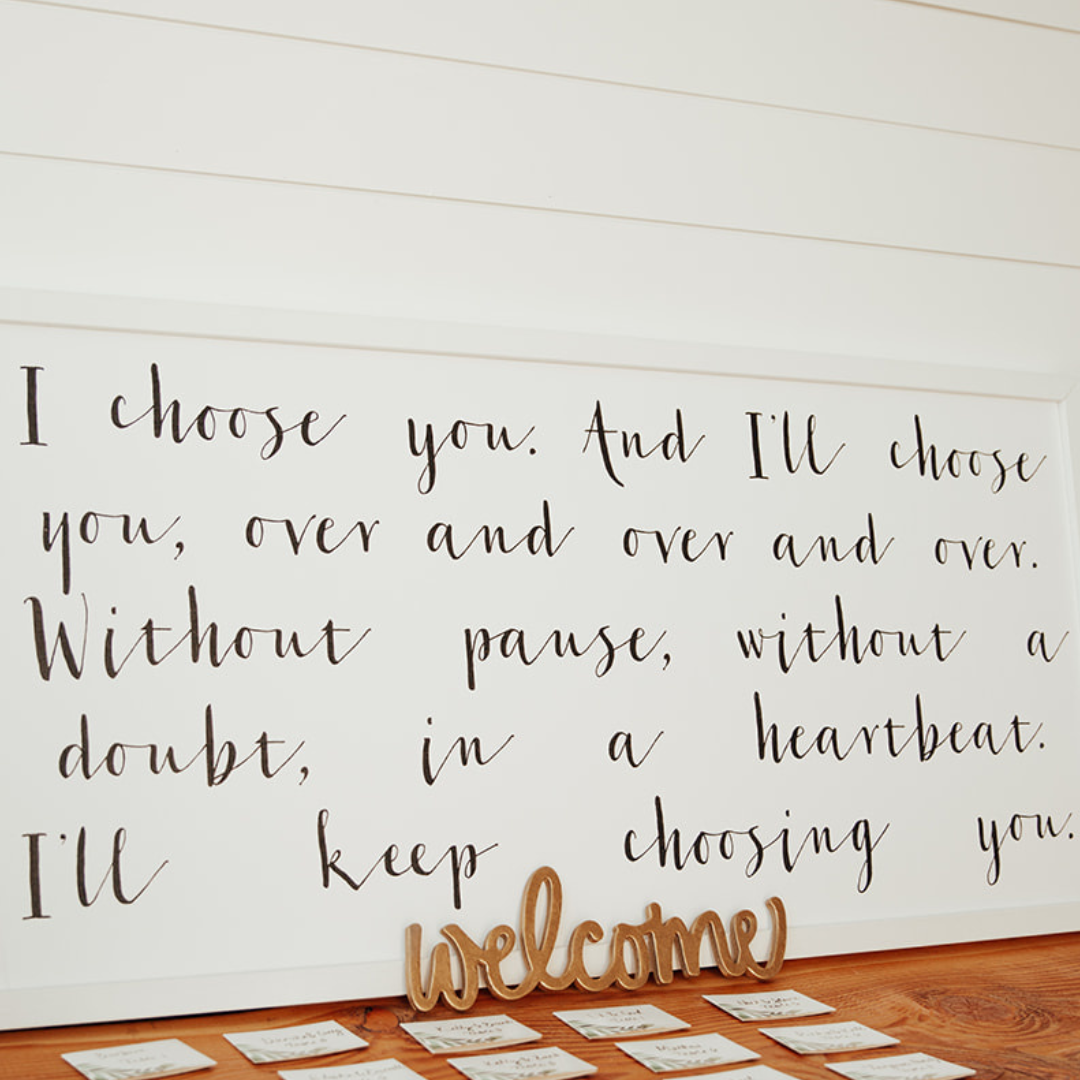 I choose you. And I'll choose
you, over and over and over.
Without pause, without a
doubt, in a heartbeat.
I'll keep choosing you.
welcome